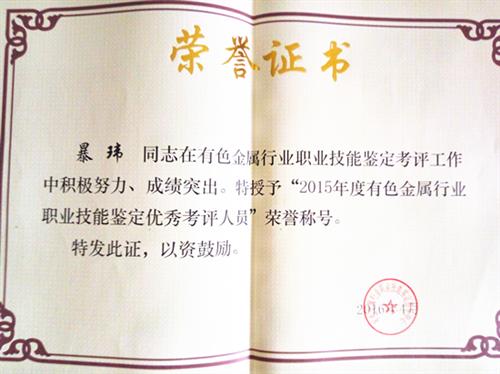 荣誉证书
暴玮 同志在有色金属行业职业技能鉴定考评工作
中积极努力、成绩突出。特授予“2015年度有色金属行业
职业技能鉴定优秀考评人员”荣誉称号。
特发此证，以资鼓励。